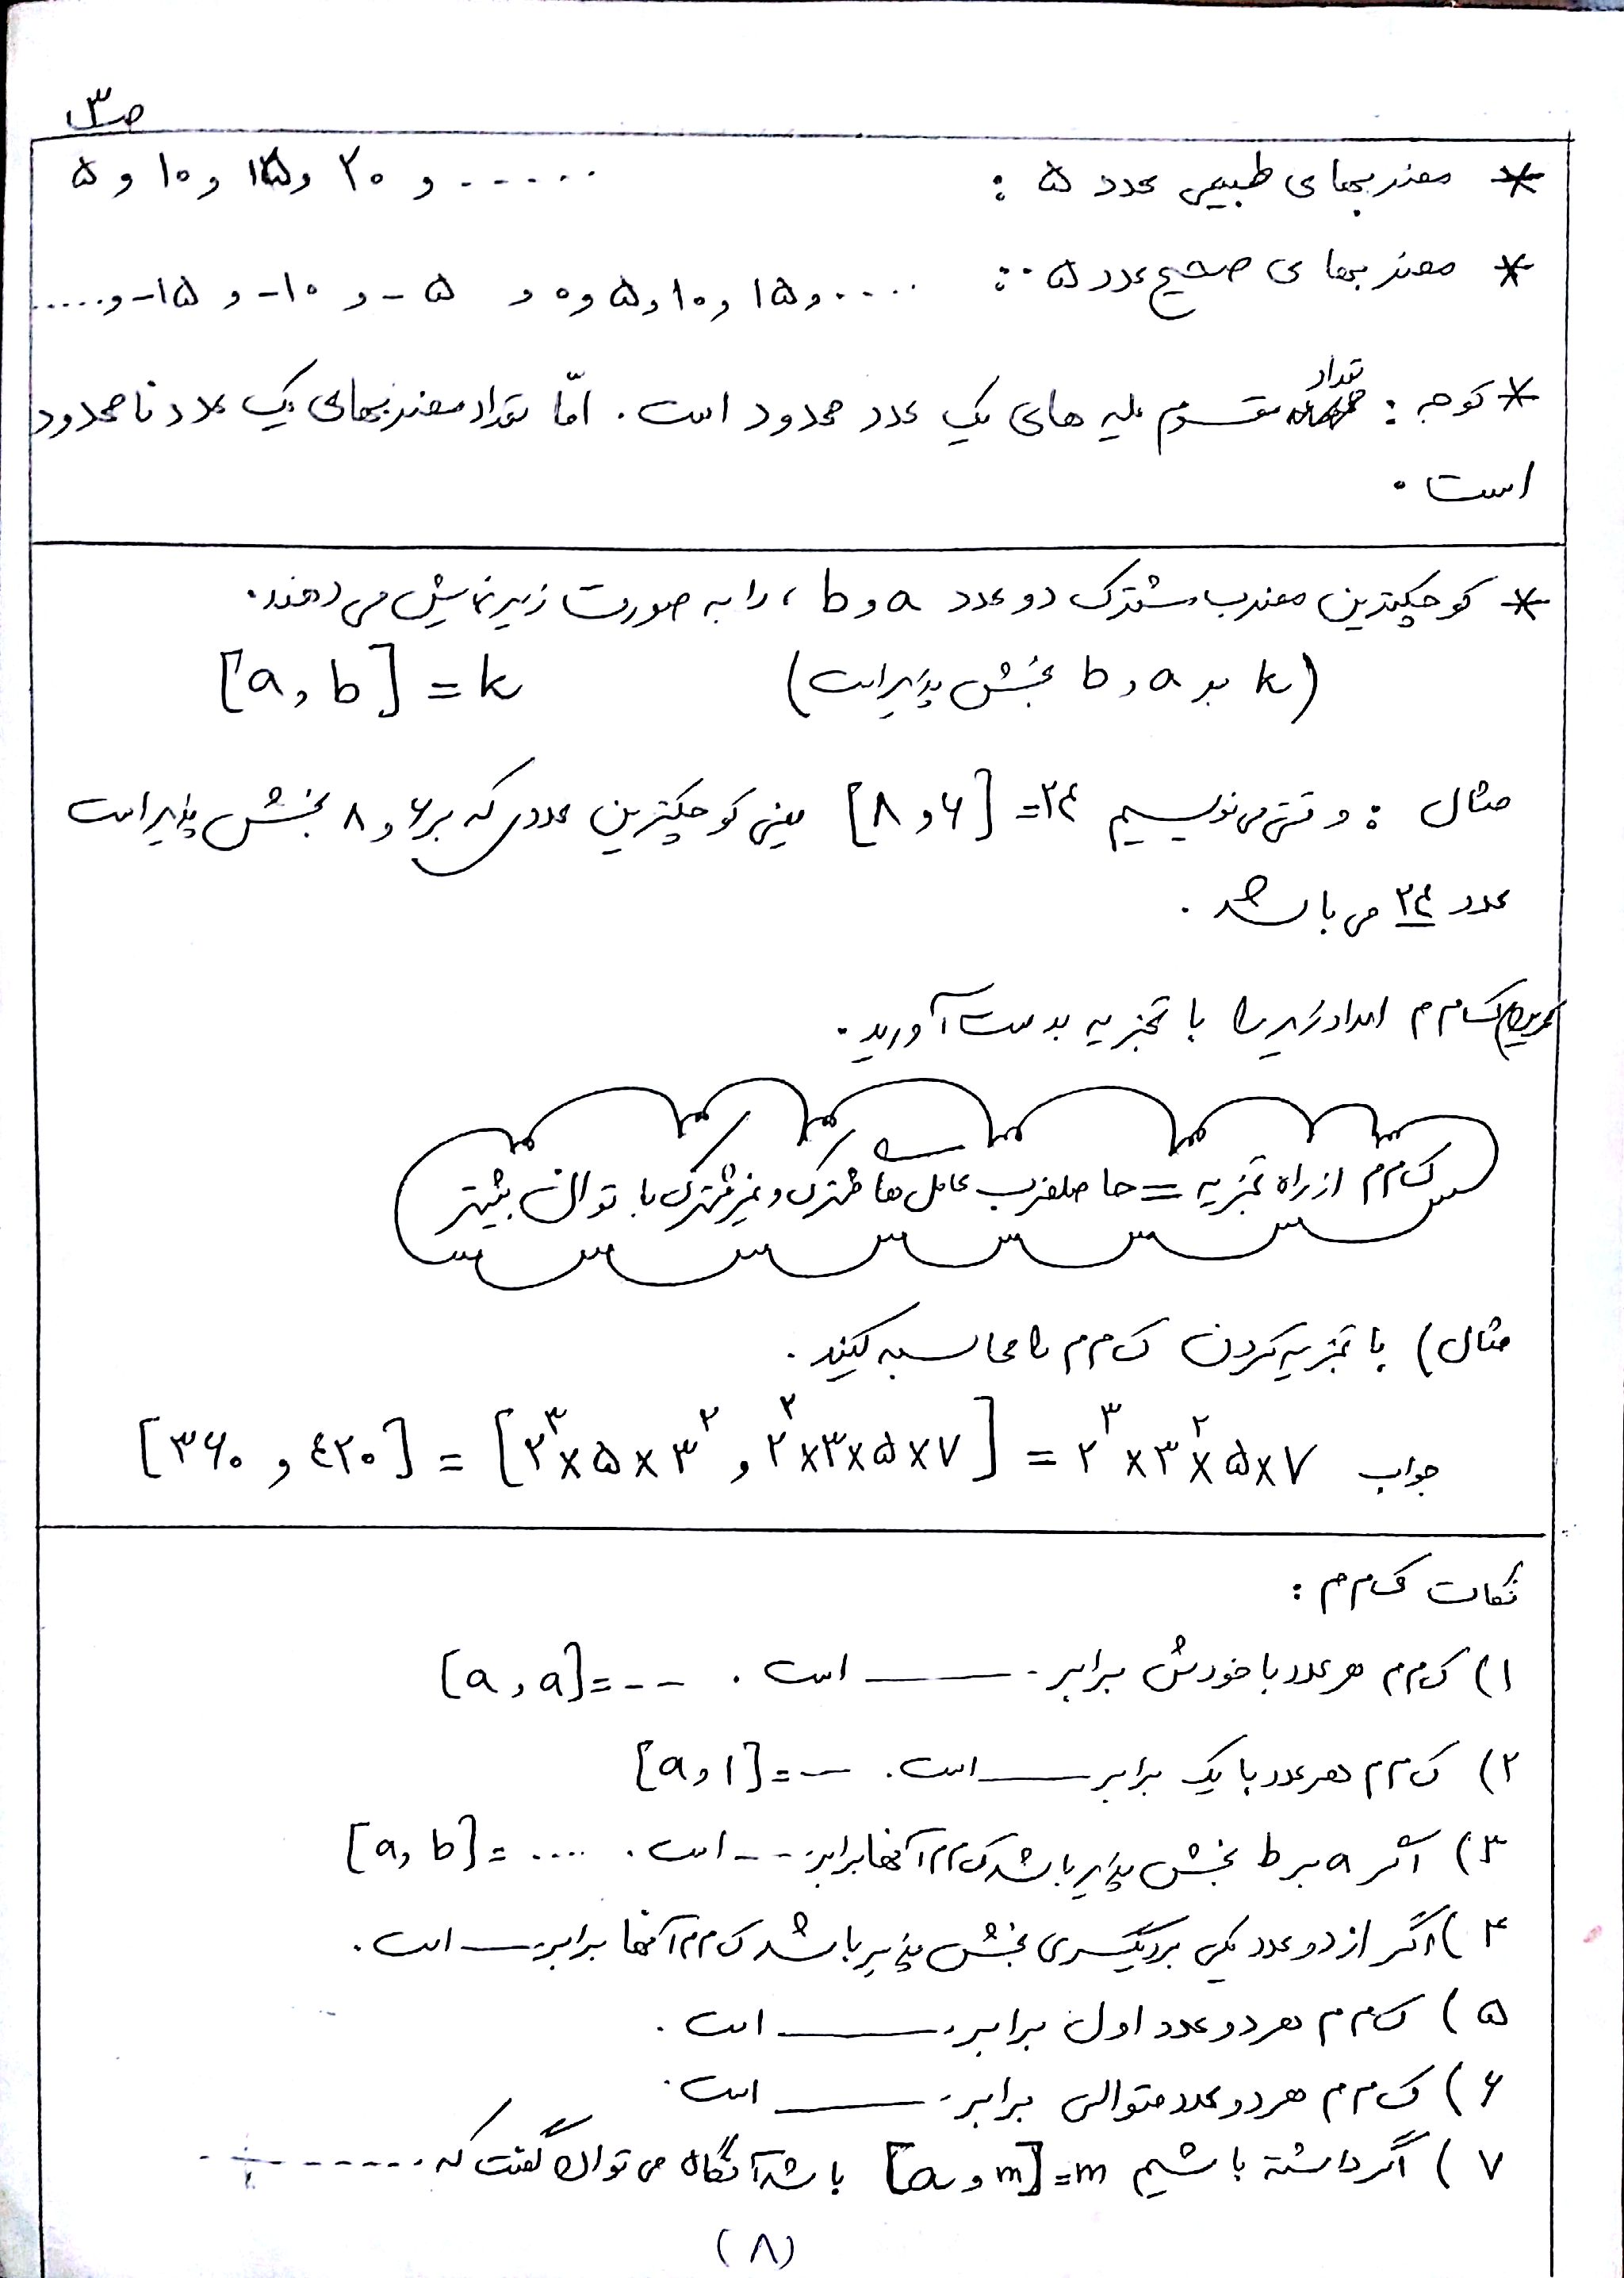 ص ۳
* مضربهای طبیعی عدد ۵ : ۵ و ۱۰ و ۱۵ و ۲۰ و ......
* مضربهای صحیح عدد ۵ : .....و -۱۵ و -۱۰ و -۵ و ۰ و ۵ و ۱۰ و ۱۵ و ....
* توجه : تعداد مقسوم علیه های یک عدد محدود است . امّا تعداد مضربهای یک عدد نامحدود
است .
* کوچکترین مضرب مشترک دو عدد a و b ، را به صورت زیر نمایش می دهند.
[a , b] = k (k بر a و b بخش پذیر است)
مثال : وقتی می نویسیم [۸ و ۶] =۲۴ یعنی کوچکترین عددی که بر ۶ و ۸ بخش پذیر است
عدد ۲۴ می باشد .
ک م م اعداد زیر را با تجزیه بدست آورید.
ک م م از راه تجزیه = حاصلضرب عامل های مشترک و غیرمشترک با توان بیشتر
مثال ) با تجزیه کردن ک م م را محاسبه کنید .
جواب [۳۶۰ , ۴۲۰] = [۲^۳ × ۵ × ۳^۲ , ۲^۲ × ۳ × ۵ × ۷] = ۲^۳ × ۳^۲ × ۵ × ۷
نکات ک م م :
۱) ک م م هر عدد با خودش برابر ــــــ است . [a , a] = ---
۲) ک م م هر عدد با یک برابر ــــــ است . [a , ۱] = --
۳) اگر a بر b بخش پذیر باشد ک م م آنها برابر --- است . [a , b] = ....
۴) اگر از دو عدد یکی بر دیگری بخش پذیر باشد ک م م آنها برابر ــــــ است .
۵) ک م م هر دو عدد اول برابر ــــــ است .
۶) ک م م هر دو عدد متوالی برابر ــــــ است .
۷) اگر داشته باشیم [a و m] = m باشد آنگاه می توان گفت که ..........
(۸)